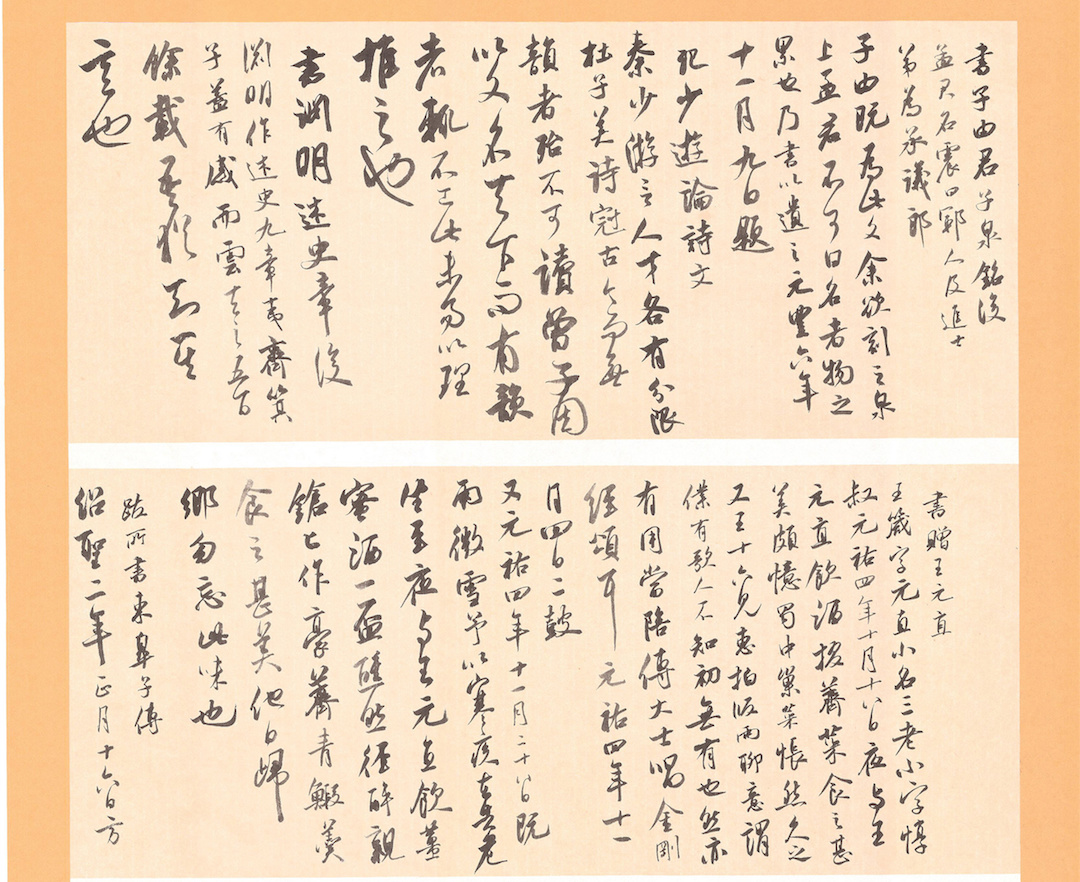 書子由君子泉銘後
孟君名震曰鄆人及進士
第為承議郎
子由既為此文余欲刻之泉
上孟君不可曰名者物之
累也乃書以遺之元豐六年
十一月九日題
記少遊論詩文
秦少游言人才各有分限
杜子美詩冠古今而無
韻者殆不可讀曾子固
以文名天下而有韻
者輒不工此未易以理
推之也
書淵明述史章後
淵明作述史九章夷齊箕
子蓋有感而雲去之五百
餘載吾猶知其
意也
書贈王元直
王箴字元直小名三老小字惇
叔元祐四年十月十八日夜與王
元直飲酒掇薺菜食之甚
美頗憶蜀中巢菜悵然久之
又王十六見惠拍板兩聊意謂
僕有歌人不知初無有也然亦
有用當陪傅大士唱金剛
經頌耳元祐四年十一
月四日二鼓
又元祐四年十一月二十八日既
雨微雪予以寒疾在告老
法至夜與王元直飲薑
蜜酒一盃醺然徑醉親
鎗匕作薺青蝦羹
食之甚美他日歸
鄉勿忘此味也
跋所書東皋子傳
紹聖二年正月十六日方